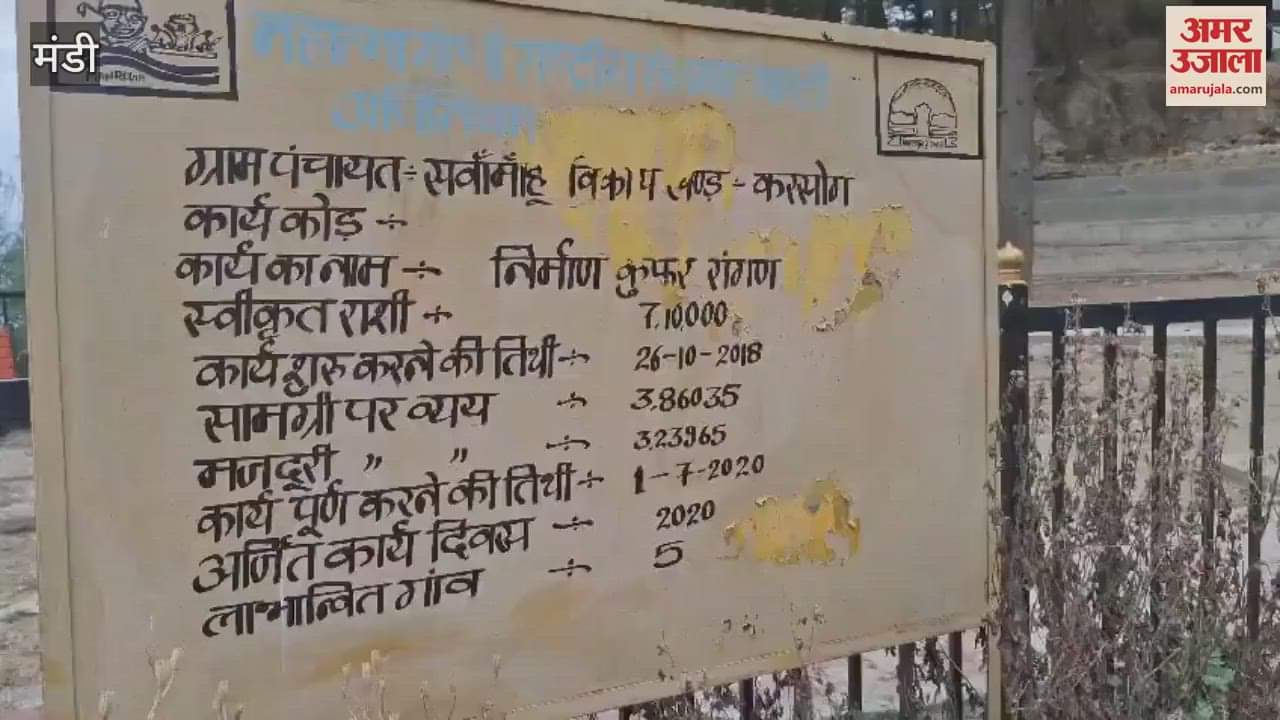 मंडी
अमर
उजाला
amarujala.com
ग्राम पंचायत ÷ सवाँमाँहू विकाप खण्ड ÷ करसोग
कार्य कोड़ ÷
कार्य का नाम ÷ निर्माण कुफर रांगण
स्वीकृत राशी ÷ 7,10,000
कार्य शुरु करने की तिथी ÷ 26-10-2018
सामग्री पर व्यय ÷ 3,86035
मजदूरी " " ÷ 3,23965
कार्य पूर्ण करने की तिथी ÷ 1-7-2020
अर्जित कार्य दिवस ÷ 2020
लाभान्वित गांव ÷ 5